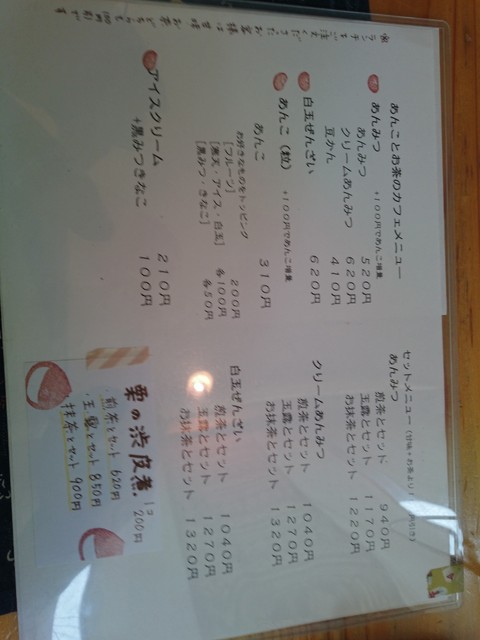 あんことお茶のカフェメニュー
あんみつ +100円であんこ増量
あんみつ 520円
クリームあんみつ 620円
豆かん 410円
白玉ぜんざい 620円
あんこ(粒) +100円であんこ増量
あんこ 310円
お好きなものをトッピング
[フルーツ] 200円
[寒天・アイス・白玉] 各100円
[黒みつ・きなこ] 各50円
アイスクリーム 210円
+黒みつきなこ 100円
※ランチをご注文くださったお客様は甘味・お茶どちらも100円引です
セットメニュー(甘味+お茶より
あんみつ
煎茶とセット 940円
玉露とセット 1170円
お抹茶とセット 1220円
クリームあんみつ
煎茶とセット 1040円
玉露とセット 1270円
お抹茶とセット 1320円
白玉ぜんざい
煎茶とセット 1040円
玉露とセット 1270円
お抹茶とセット 1320円
栗の渋皮煮 1コ 200円
・煎茶とセット 620円
・玉露とセット 850円
・抹茶とセット 900円